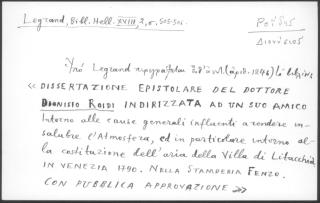 Legrand, Bibl. Hell. XVIII, 2, σ. 505-506.
Ροΐδης
Διονύσιος
Ὑπό Legrand περιγράφεται (ἀριθ. 1246) τό βιβλίον
« DISSERTAZIONE EPISTOLARE DEL DOTTORE
DIONISIO ROIDI INDIRIZZATA AD UN SUO AMICO
Intorno alle cause generali influenti a rendere in-
salubre l'Atmosfera, ed in particolare intorno al-
la costituzione dell'aria della Villa di Litacchia
IN VENEZIA 1790. NELLA STAMPERIA FENZO.
CON PUBBLICA APPROVAZIONE »